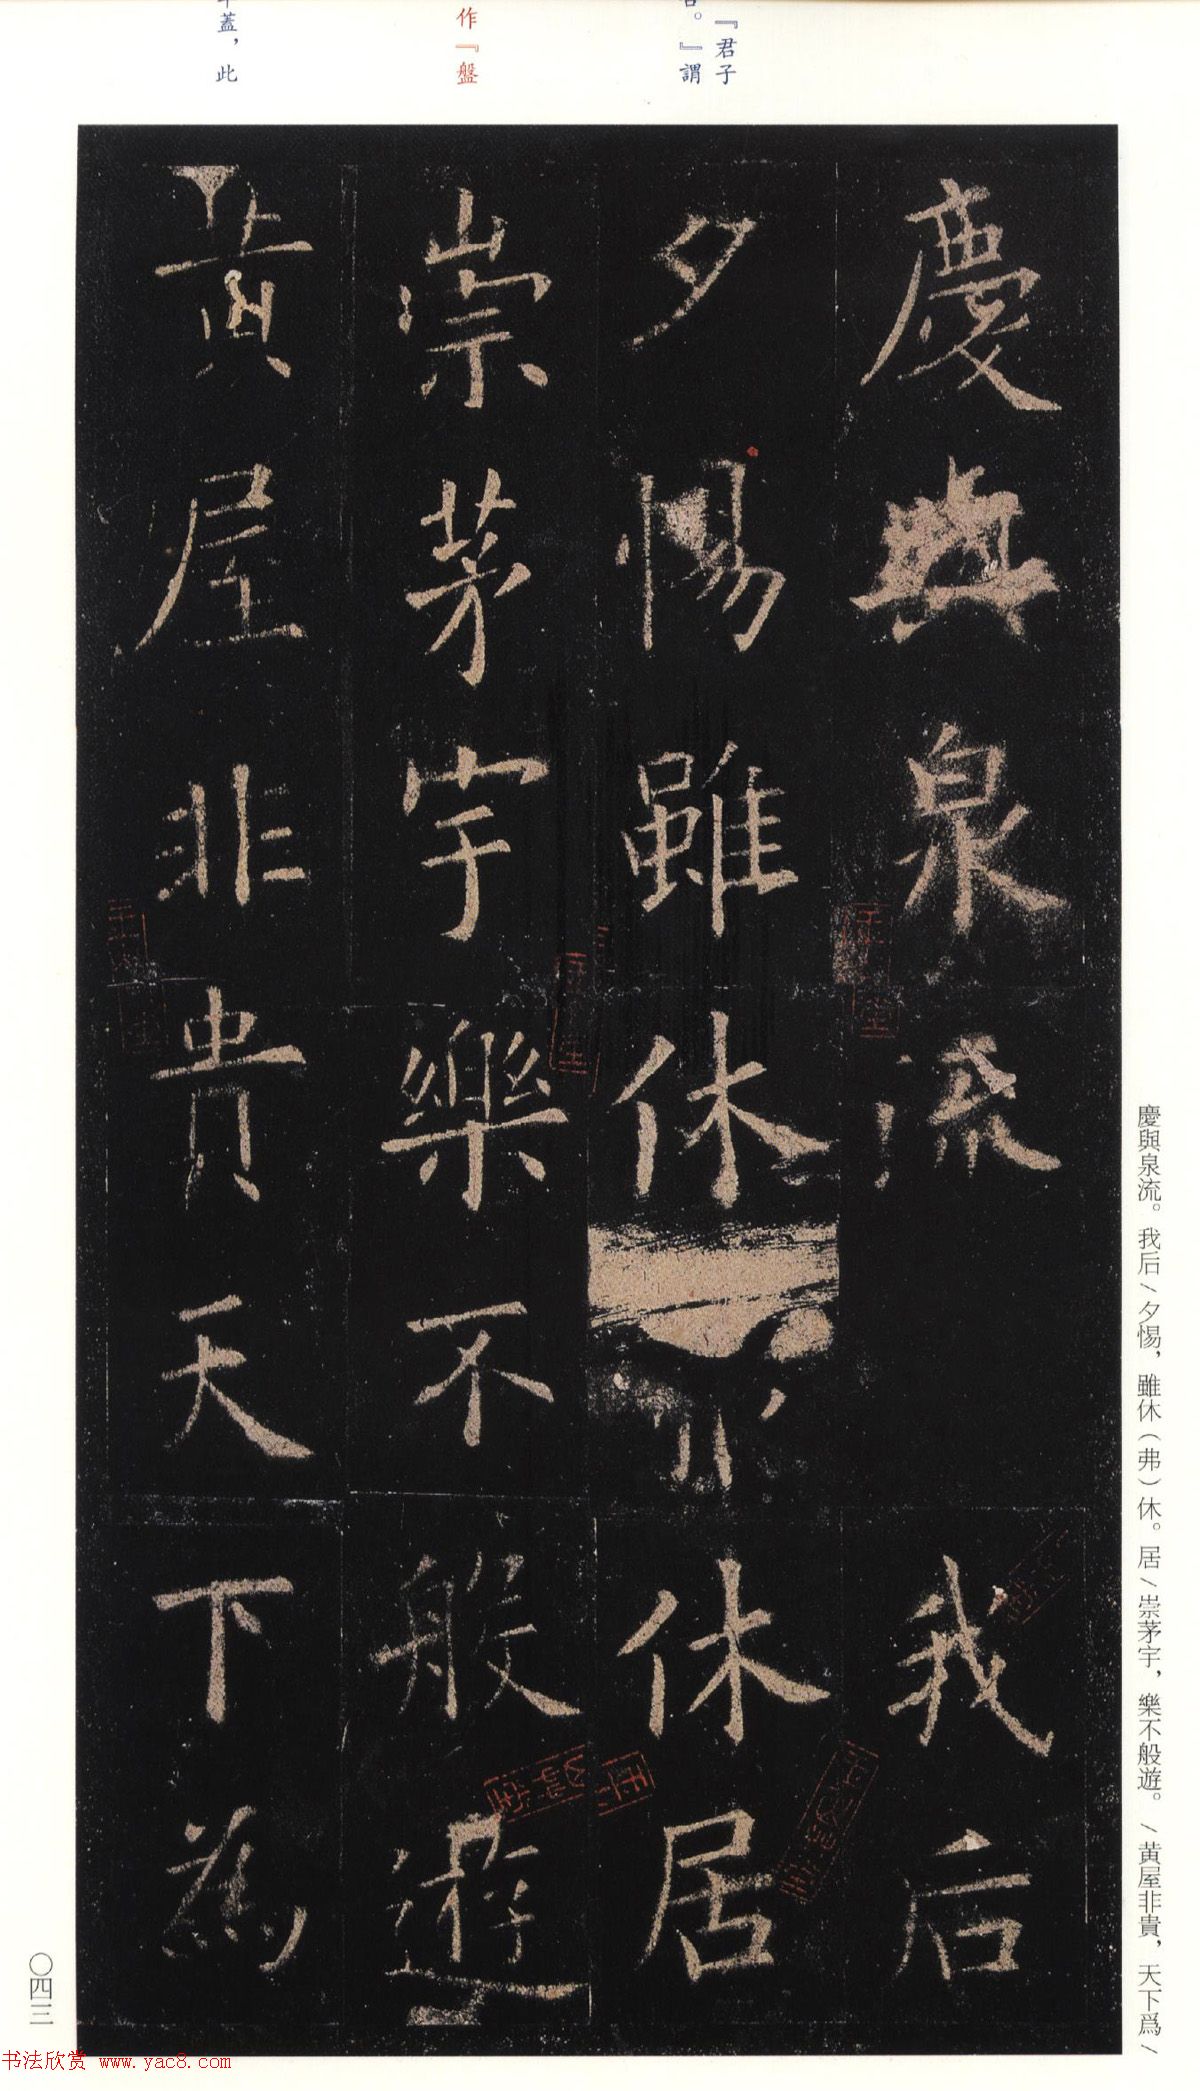 『君子
。』謂
作『盤
蓋，此
慶與泉流我后
夕惕雖休休居
崇茅宇樂不般遊
黃屋非貴天下為
慶與泉流。我后/夕惕，雖休（弗）休。居/崇茅宇，樂不般遊。/黄屋非貴，天下爲/
〇四三
书法欣赏 www.yac8.com